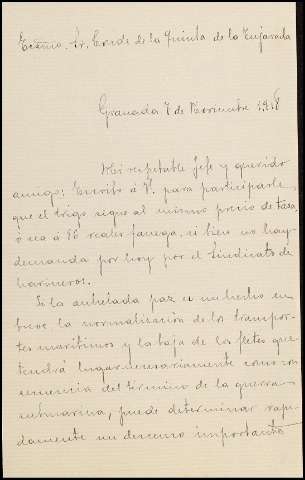 Excmo. Sr. Conde de la Quinta de la Enjarada
Granada 7 de Noviembre 1918
Mi respetable Jefe y querido
amigo: Escribo á V. para participarle,
que el trigo sigue al mismo precio de tasa
ó sea á 86 reales fanega, si bien no hay
demanda por hoy por el Sindicato de
harineros.
Si la anhelada paz es un hecho en
breve, la normalización de los transpor-
tes marítimos y la baja de los fletes que
tendrá lugar necesariamente como con
secuencia del termino de la guerra
submarina, puede determinar rapi-
damente un descenso importante